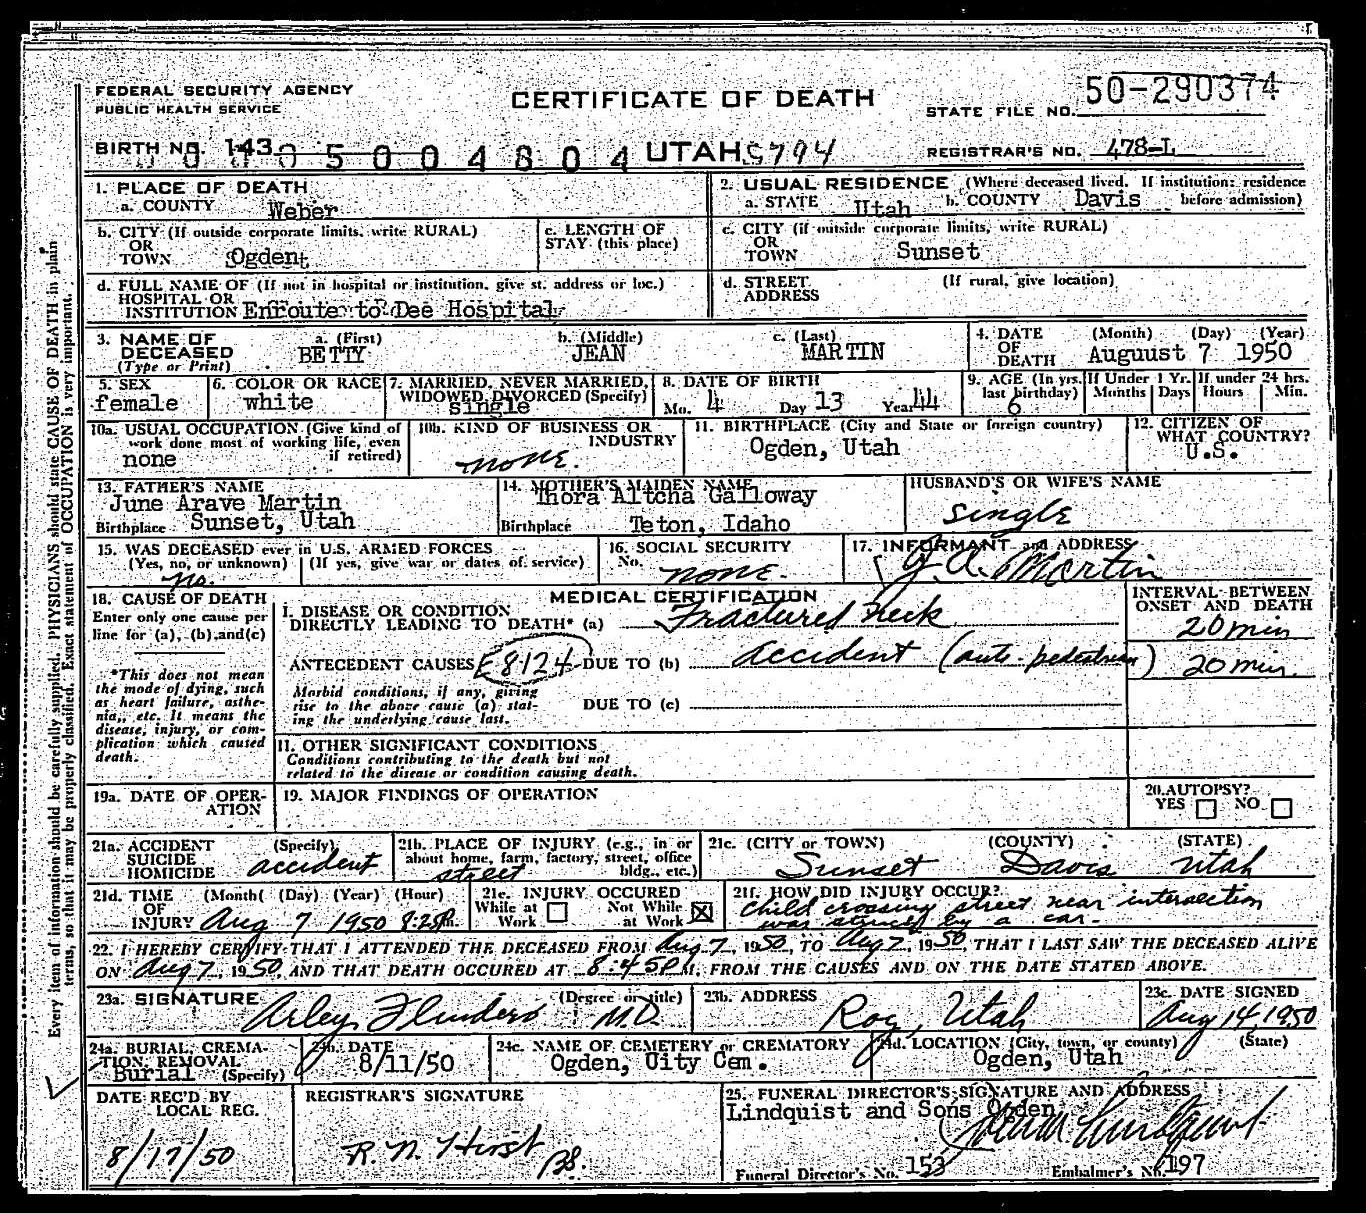 FEDERAL SECURITY AGENCY
PUBLIC HEALTH SERVICE
CERTIFICATE OF DEATH
STATE FILE NO. 50-290374
BIRTH NO. 143
5 0 0 4 8 0 4 UTAH S794
REGISTRAR'S NO. 478-L
1. PLACE OF DEATH
a. COUNTY Weber
2. USUAL RESIDENCE (Where deceased lived. If institution: residence before admission)
a. STATE Utah b. COUNTY Davis
b. CITY (If outside corporate limits, write RURAL)
OR
TOWN Ogden
c. LENGTH OF
STAY (this place)
c. CITY (if outside corporate limits, write RURAL)
OR
TOWN Sunset
d. FULL NAME OF (If not in hospital or institution, give st. address or loc.)
HOSPITAL OR
INSTITUTION Enroute to Dee Hospital
d. STREET (If rural, give location)
ADDRESS
3. NAME OF
DECEASED
(Type or Print)
a. (First) b. (Middle) c. (Last)
BETTY JEAN MARTIN
4. DATE (Month) (Day) (Year)
OF
DEATH Auguust 7 1950
5. SEX
female
6. COLOR OR RACE
white
7. MARRIED, NEVER MARRIED,
WIDOWED DIVORCED (Specify)
single
8. DATE OF BIRTH
Mo. 4 Day 13 Year 44
9. AGE (In yrs. last birthday) 6
If Under 1 Yr.
Months Days
If under 24 hrs.
Hours Min.
10a. USUAL OCCUPATION (Give kind of
work done most of working life, even
if retired)
none
10b. KIND OF BUSINESS OR
INDUSTRY
none.
11. BIRTHPLACE (City and State or foreign country)
Ogden, Utah
12. CITIZEN OF
WHAT COUNTRY?
U.S.
13. FATHER'S NAME
June Arave Martin
Birthplace Sunset, Utah
14. MOTHER'S MAIDEN NAME
Thora Altcha Galloway
Birthplace Teton, Idaho
HUSBAND'S OR WIFE'S NAME
single
15. WAS DECEASED ever in U.S. ARMED FORCES
(Yes, no, or unknown) (If yes, give war or dates of service)
no.
16. SOCIAL SECURITY
No. none.
17. INFORMANT and ADDRESS
J. A. Martin
18. CAUSE OF DEATH
Enter only one cause per
line for (a), (b), and (c)
*This does not mean
the mode of dying, such
as heart failure, asthe-
nia, etc. It means the
disease, injury, or com-
plication which caused
death.
MEDICAL CERTIFICATION
I. DISEASE OR CONDITION
DIRECTLY LEADING TO DEATH* (a) Fractured neck
ANTECEDENT CAUSES E8124 DUE TO (b) accident (auto-pedestrian)
Morbid conditions, if any, giving
rise to the above cause (a) stat-
ing the underlying cause last.
DUE TO (c)
II. OTHER SIGNIFICANT CONDITIONS
Conditions contributing to the death but not
related to the disease or condition causing death.
INTERVAL BETWEEN
ONSET AND DEATH
20 min
20 min.
19a. DATE OF OPER-
ATION
19. MAJOR FINDINGS OF OPERATION
20. AUTOPSY?
YES NO
21a. ACCIDENT (Specify)
SUICIDE
HOMICIDE accident
21b. PLACE OF INJURY (e.g., in or
about home, farm, factory, street, office
bldg., etc.)
street
21c. (CITY or TOWN) (COUNTY) (STATE)
Sunset Davis Utah
21d. TIME (Month) (Day) (Year) (Hour)
OF
INJURY Aug 7 1950 8:25 P m.
21e. INJURY OCCURED
While at Work
Not While at Work
21f. HOW DID INJURY OCCUR?
Child crossing street near intersection
was struck by a car.
22. I HEREBY CERTIFY THAT I ATTENDED THE DECEASED FROM Aug 7, 1950, TO Aug 7, 1950, THAT I LAST SAW THE DECEASED ALIVE
ON Aug 7, 1950, AND THAT DEATH OCCURED AT 8:45 P M. FROM THE CAUSES AND ON THE DATE STATED ABOVE.
23a. SIGNATURE (Degree or title)
Arley Flinders M.D.
23b. ADDRESS
Roy, Utah
23c. DATE SIGNED
Aug 14 1950
24a. BURIAL, CREMA-
TION REMOVAL
Burial (Specify)
24b. DATE
8/11/50
24c. NAME OF CEMETERY or CREMATORY
Ogden, Uity Cem.
24d. LOCATION (City, town, or county) (State)
Ogden, Utah
DATE REC'D BY
LOCAL REG.
8/17/50
REGISTRAR'S SIGNATURE
R. N. Hirst
25. FUNERAL DIRECTOR'S SIGNATURE AND ADDRESS
Lindquist and Sons Ogden
Funeral Director's No. 153 Embalmer's No. 197
Every item of information should be carefully supplied. PHYSICIANS should state CAUSE OF DEATH in plain
terms, so that it may be properly classified. Exact statement of OCCUPATION is very important.